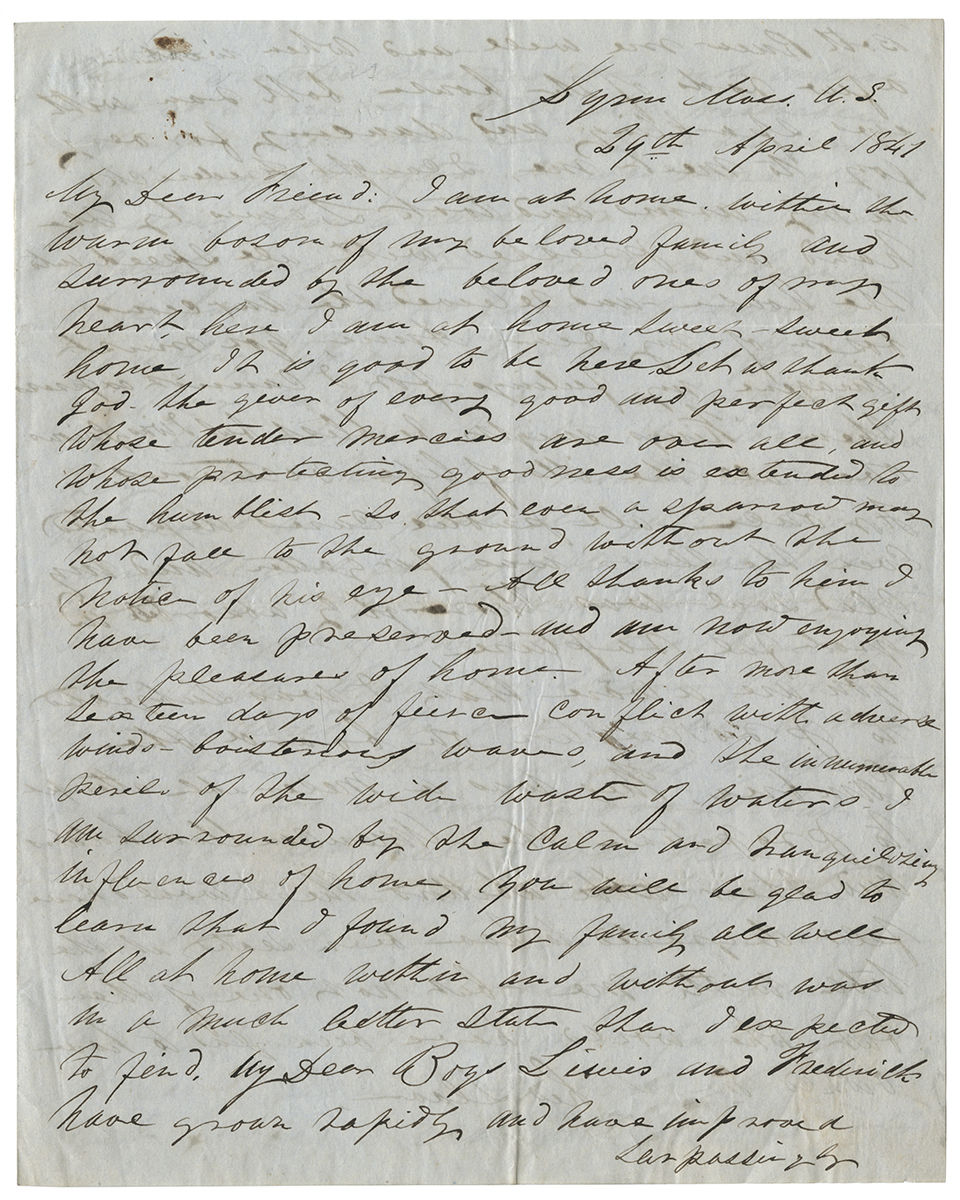 Lynn Mass. U.S.
29th April 1847
My Dear Friend: I am at home. within the
warm bosom of my beloved family and
surrounded by the beloved ones of my
heart, here I am at home sweet - sweet
home, It is good to be here Let us thank
God - the giver of every good and perfect gift
whose tender mercies are over all, and
whose protecting goodness is extended to
the humblist - so that even a sparrow may
not fall to the ground without the
notice of his eye - All thanks to him I
have been preserved - and am now enjoying
the pleasures of home. After more than
sexteen days of feirce conflict with adverse
winds - boisterous waves, and the innumerable
perils of the wide waste of waters - I
am surrounded by the calm and tranquilizing
influences of home, You will be glad to
learn that I found my family all well
All at home within and without was
in a much better state than I expected
to find. My Dear Boys Lewis and Frederick
have grown rapidly and have improved
surpassingly